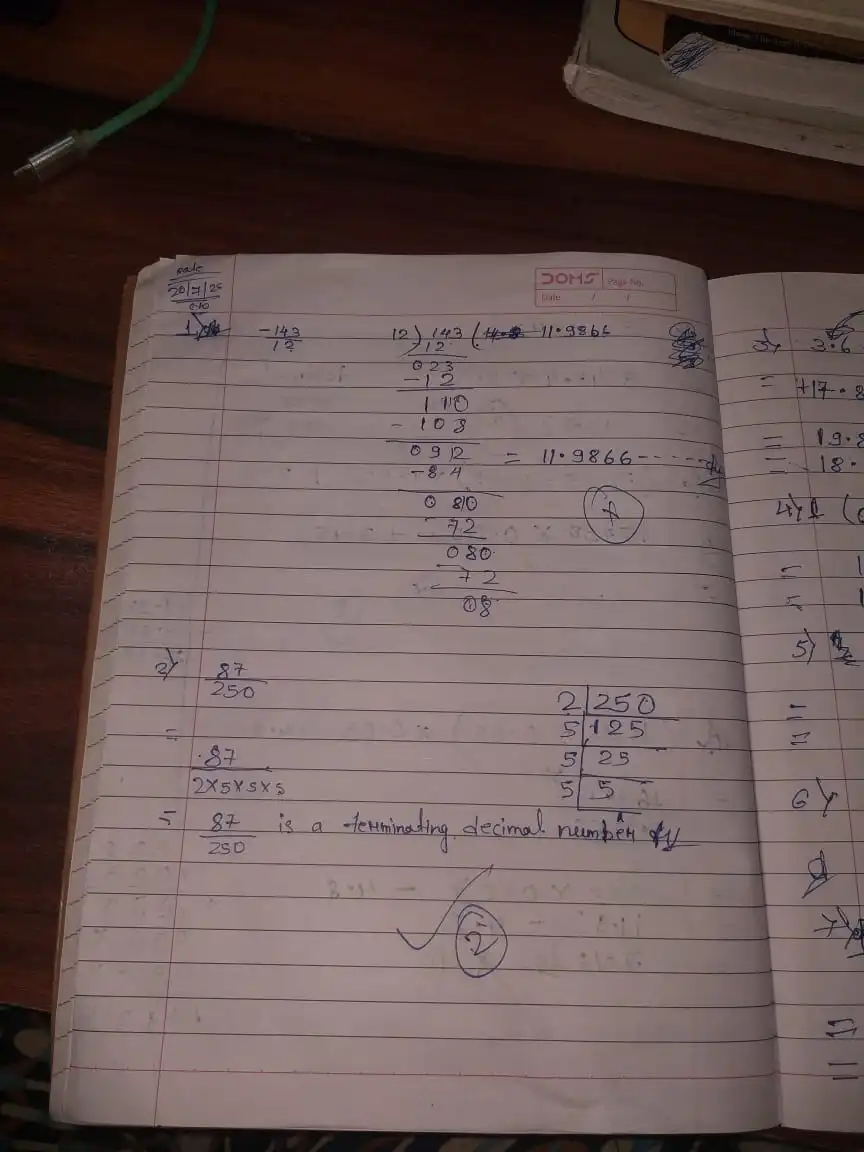 Date
20/7/25
DOMS Page No.
Date / /
1)
-143
12
12) 143 ( 11.9866
12
023
-12
110
- 108
0912
-8.4
080
72
080
72
08
= 11.9866-----
2)
87
250
2 250
5 125
5 25
5 5
1
=
87
2×5×5×5
= 87
250
is a terminating decimal number
2
3)
3.6
= +17.8
= 19.8
= 18.
4)
=
=
5)
=
=
6)
7)
=
=